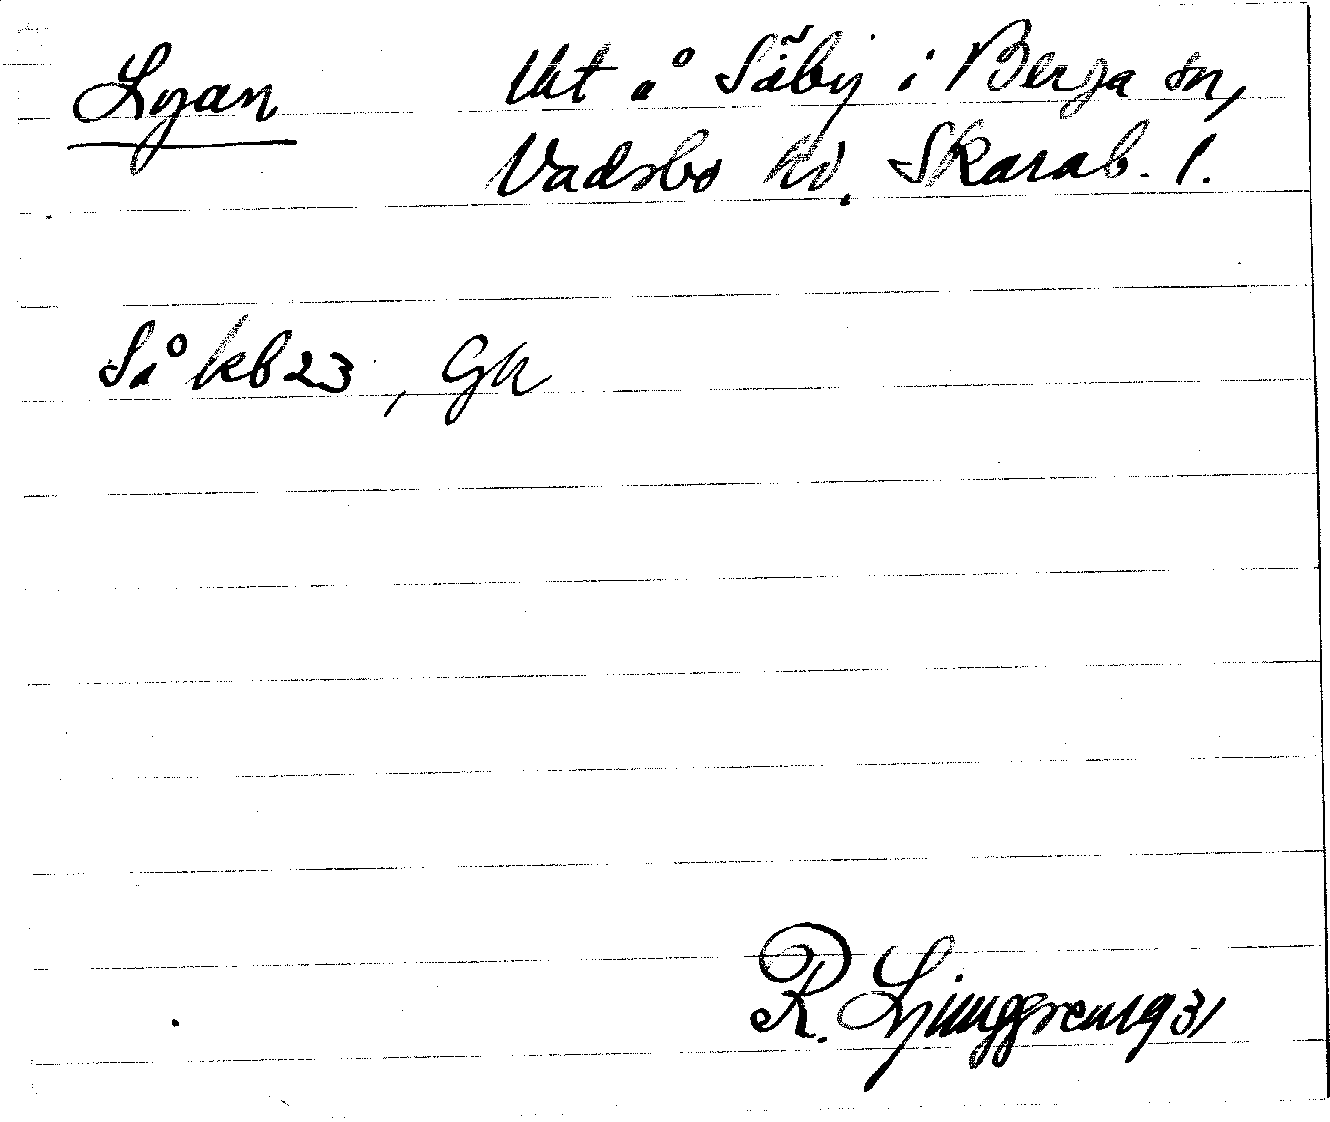 Lyan
Ut å Säby i Berga sn,
Vadsbo hd. Skarab. l.
Så kb 23, Gk
R. Ljunggren 1931